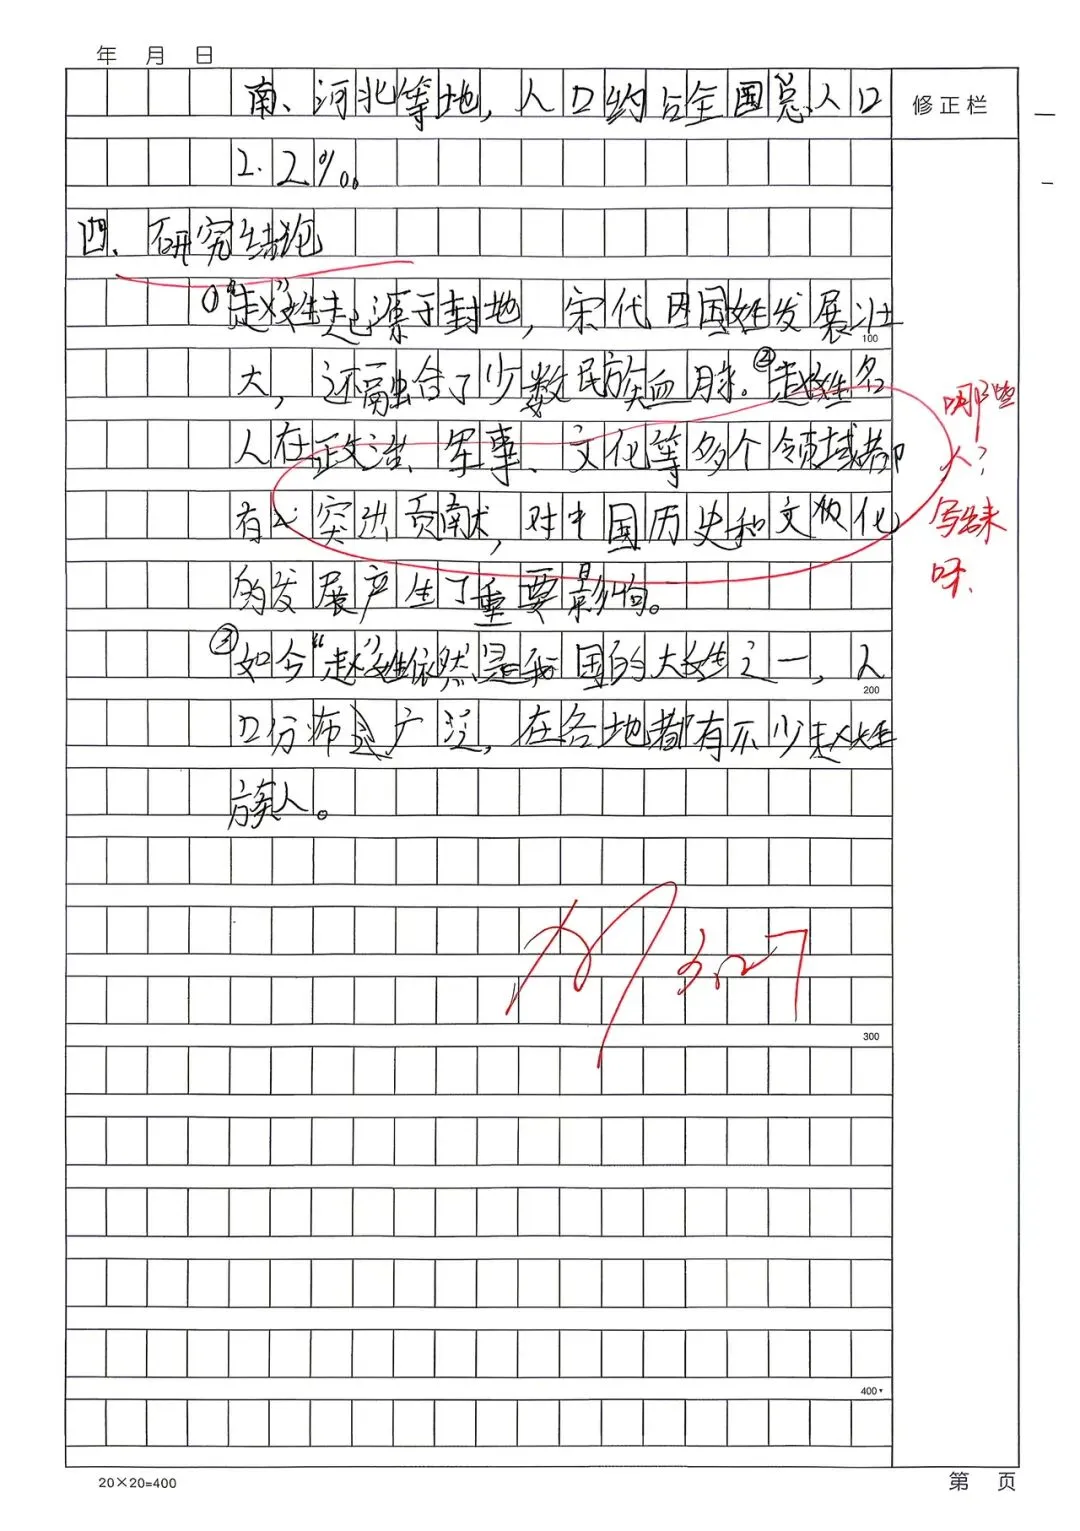 年 月 日
南、河北等地，人口约占全国总人口
修正栏
2.2%。
四、研究结论
①“赵”姓起源于封地，宋代因国姓发展壮
100
大，还融合了少数民族血脉。②赵姓名
人在政治、军事、文化等多个领域都
有突出贡献，对中国历史和文化
的发展产生了重要影响。
哪些
人？
写出来
呀.
③如今“赵”姓依然是我国的大姓之一，人
200
口分布广泛，在各地都有不少赵姓
族人。
3.27
300
400
20×20=400
第 页